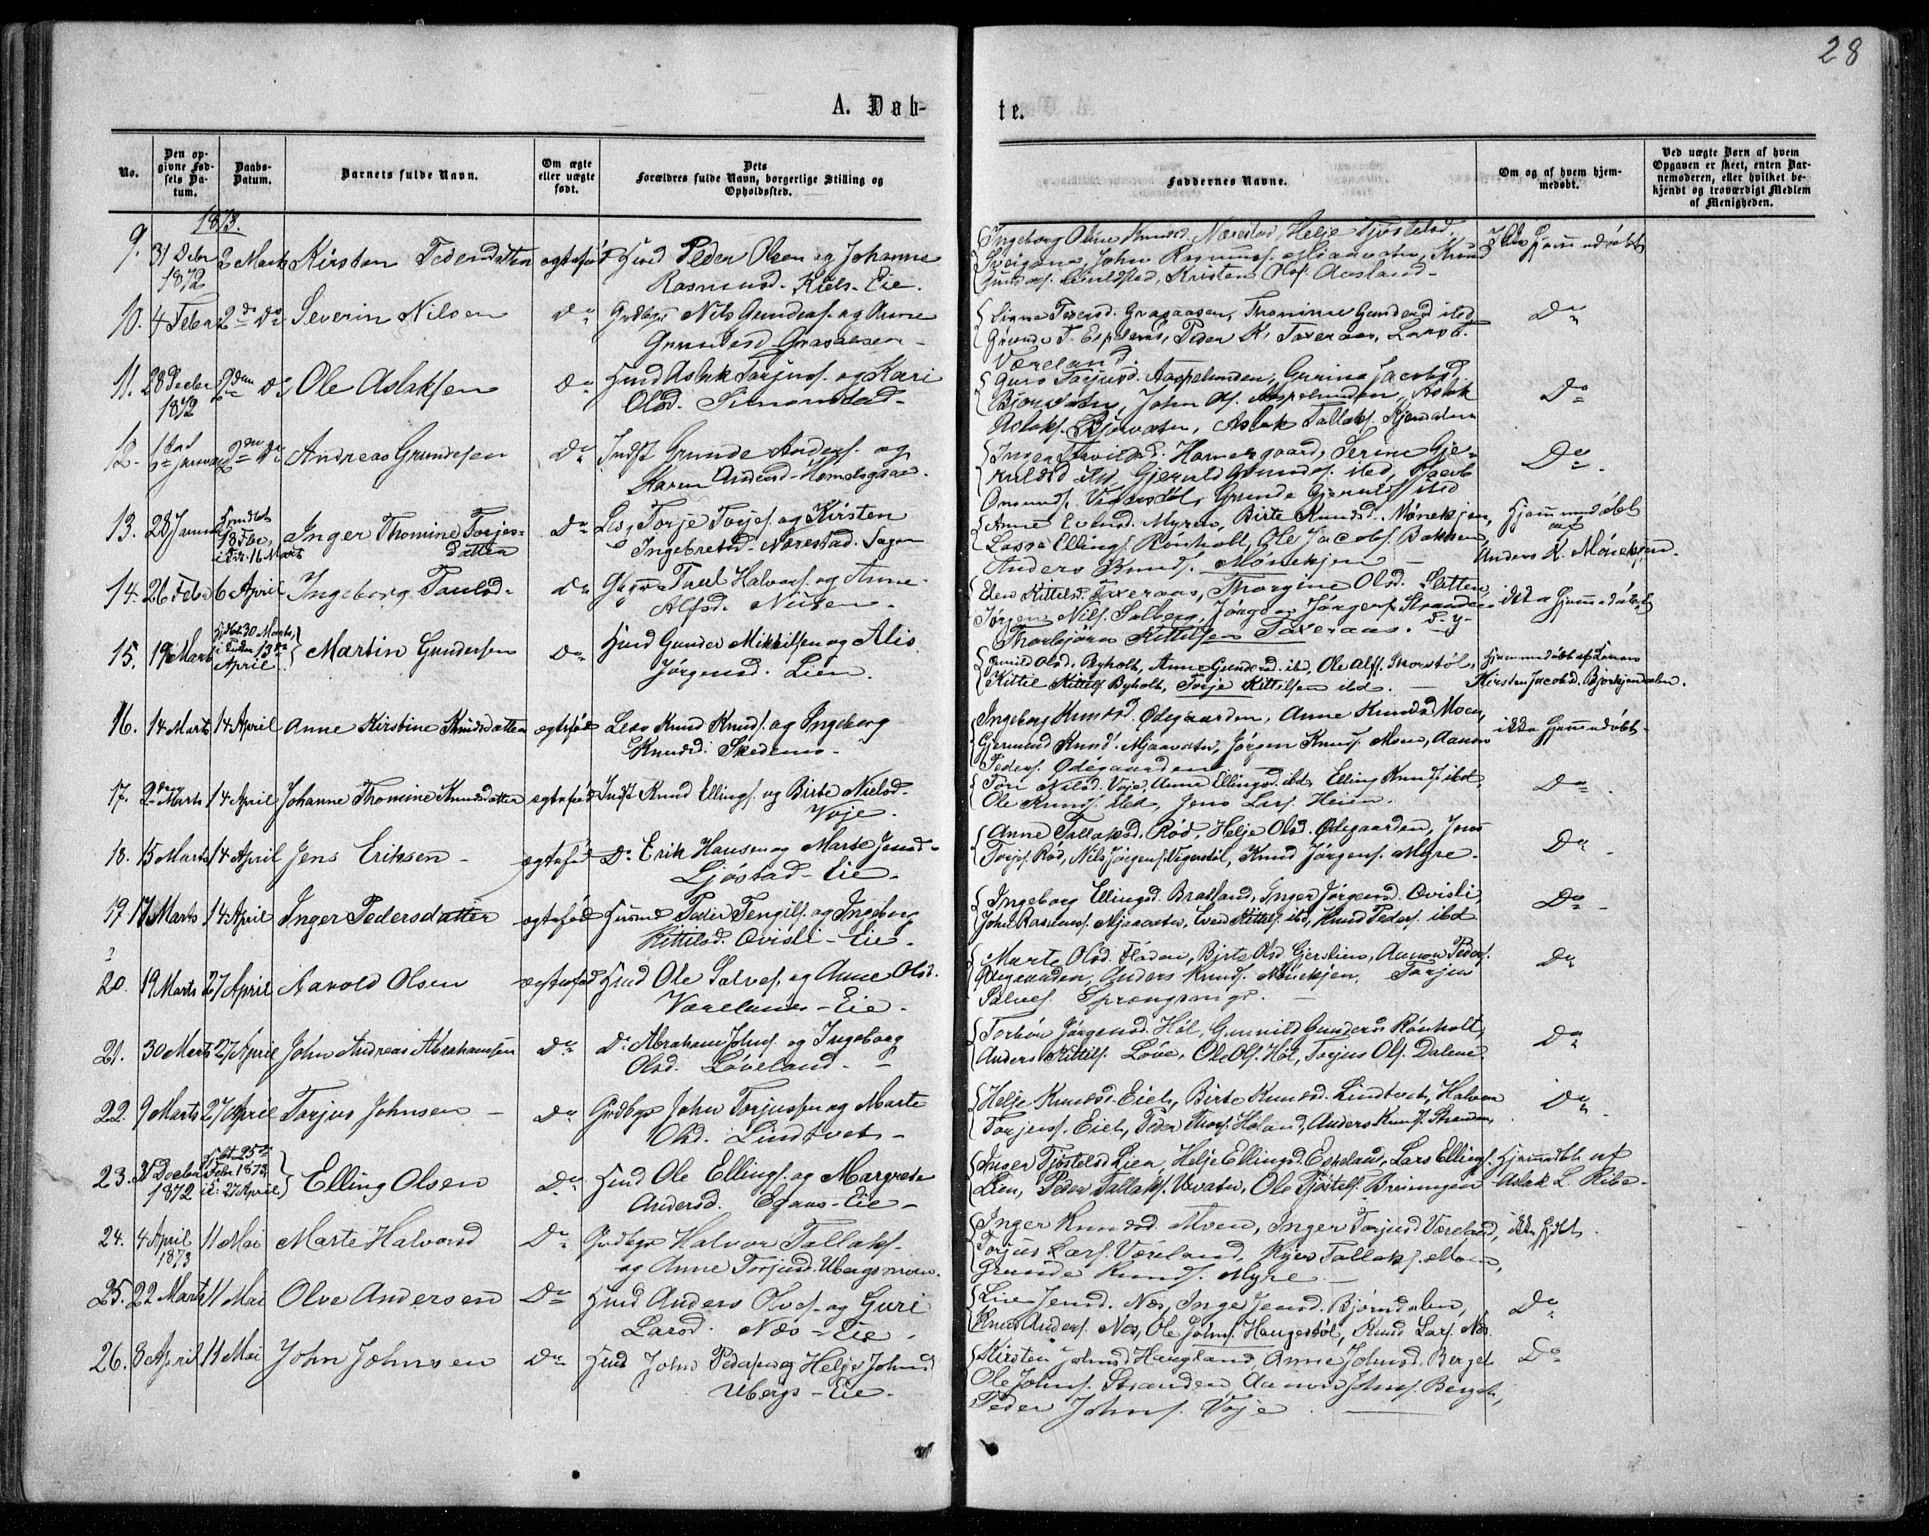 28
A. Døb-
te.
No.
Den op-
givne Fød-
sels Da-
tum.
Daabs-
Datum.
Barnets fulde Navn.
Om ægte
eller uægte
født.
Dets
Forældres fulde Navn, borgerlige Stilling og
Opholdssted.
Faddernes Navne.
Om og af hvem hjem-
medøbt.
Ved uægte Børn af hvem
Opgaven er skeet, enten Bar-
nemoderen, eller hvilket be-
kjendt og troværdigt Medlem
af Menigheden.
1873.
9. 31 Decbr 2 Marts Kirsten Pedersdatter egtefød Husmd Peder Olsen og Johanne
1872 Rasmusd. Kiels-Eie.
Ingeborg Knudsd. Nærestad, Helje Tjøstelsd.
John Rasmuss. Mjaavatn, Knud
Kristen Olss. Aasland
Ikke Hjemmedøbt
10. 4 Febr 2den Do Severin Nilsen Do Grdbgr Nils Gunders. og Anne
Grundesd. Graaaasen
Tversd. Graaaasen, Thomine Gundersd ibd
Grunde T. Espelens, Peder K. Taxeraas,
Væreland.
Do
11. 28 Decbr 2den Do Ole Aslaksen Do Husmd Aslak Torjuss. og Kari
1872 Olsd. Simonstad
Guro Torjusd. Aaspelunden, Gurine Jacobsd
Bjorvatn, John Ols. Aaspelunden, Aslak
Aslaks. Bjorvatn, Aslak Tallaks. Kjendalen
Do
12. 1ste Januar 2den Do Andreas Grundesen Do Indst Grunde Anders. og
Karen Andersd Homelsgaard
Hommelsgaard, Serine Gje-
ruldsd ibd, Gjeruld Grundes. ibd, Jacob
Omunds. Vigerstøl, Grunde Gjerulds. ibd
Do
13. 28 Januar 18 Febr, Inger Thomine Torjes- Do Torje Torjes. og Kirsten
i Kir. 16 Marts datter Ingebretsd. Nærestad.
Anne Evensd. Myren, Birte Knudsd. Mønekjen,
Lasse Ellings. Rønholt, Ole Jacobs. Bakken,
Anders Knuds. Mønekjen
Hjemmedøbt
af
Anders K. Mønekjen
14. 26 Febr 6 April Ingeborg Taulsd. Do Taul Halvors. og Anne
Alfsd. Nuten.
Elen Kittelsd. Taxeraas, Thorgine Olsd. Sletten
Jørgen Nils. Solberg, Jørgen Jørgens. Stranden
Thorbjørn Kittelsen Taxeraas.
ikke Hjemmedøbt
15. 19 Marts 30 Marts, Martin Gundersen Do Husmd Gunder Mikkelsen og Alis
April Jørgensd. Lien.
Gunild Olsd. Byholt, Anne Gundersd. ibd, Ole Alfs. Thorstøl,
Kittil Kittils. Byholt, Torje Kittilsen ibd.
Hjemmedøbt af
Kirsten Jacobsd. Bjorkjendalen.
16. 14 Marts 14 April Anne Kirstine Knudsdatter egtefød Knud Knuds. og Ingeborg
Knudsd. Skidemo
Ingeborg Knudsd Ødegaarden, Anne Knudsd Moen,
Gjermund Knuds. Mjaavatn, Jørgen Knuds. Moen, Aanon
Peders. Ødegaarden
ikke Hjemmedøbt
17. 2 Marts 14 April Johanne Thomine Knudsdatter egtefød Indst Knud Ellings. og Birte Nielsd.
Voje.
Tori Nilsd. Voje, Anne Ellingsd. ibd, Elling Knuds. ibd,
Ole Knuds. ibd, Jens Lars. Heien.
Do
18. 15 Marts 14 April Jens Eriksen egtefød Do Erik Hansen og Marte Jensd.
Ljøstad-Eie
Anne Tallaksd. Rød, Helje Olsd. Ødegaarden, Jens
Torjes. Rød, Nils Jørgens. Vigerstøl, Knud Jørgens. Myre.
Do
19 17 Marts 14 April Inger Pedersdatter egtefød Husmd Peder Tengils. og Ingeborg
Kittilsd. Ovisli-Eie
Ingeborg Ellingsd. Bratland, Inger Jørgensd. Ovisli,
John Rasmuss. Mjaavatn, Even Kittils. ibd, Knud Peders. ibd
Do
20. 19 Marts 27 April Aavold Olsen egtefød Husmd Ole Salves. og Anne Olsd.
Værelands-Eie.
Marte Olsd. Floden, Birte Olsd Gjerslien, Aanon Peders.
Ødegaarden, Anders Knuds. Mønekjen, Torjus
Salves. Sprongsmyr.
Do
21. 30 Marts 27 April John Andreas Abrahamsen Do Do Abraham Johns. og Ingeborg
Olsd. Løveland.
Torbør Jørgensd. Høl, Gunnild Gundersd Rønholt,
Anders Kittils. Løve, Ole Ols. Høl, Torjus Ols. Dalene
Do
22. 9 Marts 27 April Torjus Johnsen Do Grdbgr John Torjussen og Marte
Olsd. Lindtveit
Helje Knudsd. Eiel, Birte Knudsd. Lindtveit, Halvor
Torjuss. Eiel, Peder Thors. Høland, Anders Knuds. Stranden
Do
23. 31 Decbr Hjdbt 25de Febr. 1873 Elling Olsen Do Husmd Ole Ellings. og Margrete
1872 i K. 27 April Andersd. Egans-Eie
Inger Tjøstelsd Lien, Helje Ellingsd. Espeland, Lars Ellings.
Lien, Peder Tallaks. Uvatn, Ole Tjøstels. Breiungen
Hjemmedøbt af
Aslak L. Ribe
24. 4 April 11 Mai Marte Halvorsd Do Grdbgr Halvor Tallaks.
1873 og Anne Torjusd. Ubergsmoen
Inger Knudsd. Moen, Inger Torjusd Væreland,
Torjus Lars. Væreland, Tallaks. Moen,
Grunde Knuds. Myre.
ikke hjdbt.
25. 22 Marts 11 Mai Olve Andersen Do Husmd Anders Olves. og Guri
Larsd. Næs-Eie
Live Jensd. Næs, Inge Jensd. Bjørndalen,
Knud Anders. Næs, Ole Johns. Haugestøl, Knud Lars. Næs
Do
26. 8 April 11 Mai John Johnsen Do Husmd John Peders. og Helje Johnsd
Ubergs-Eie.
Kirsten Johnsd Haugland, Anne Johnsd. Berget
Ole Johns. Stranden Aanon Johns. Berget,
Peder Johns. Voje
Do